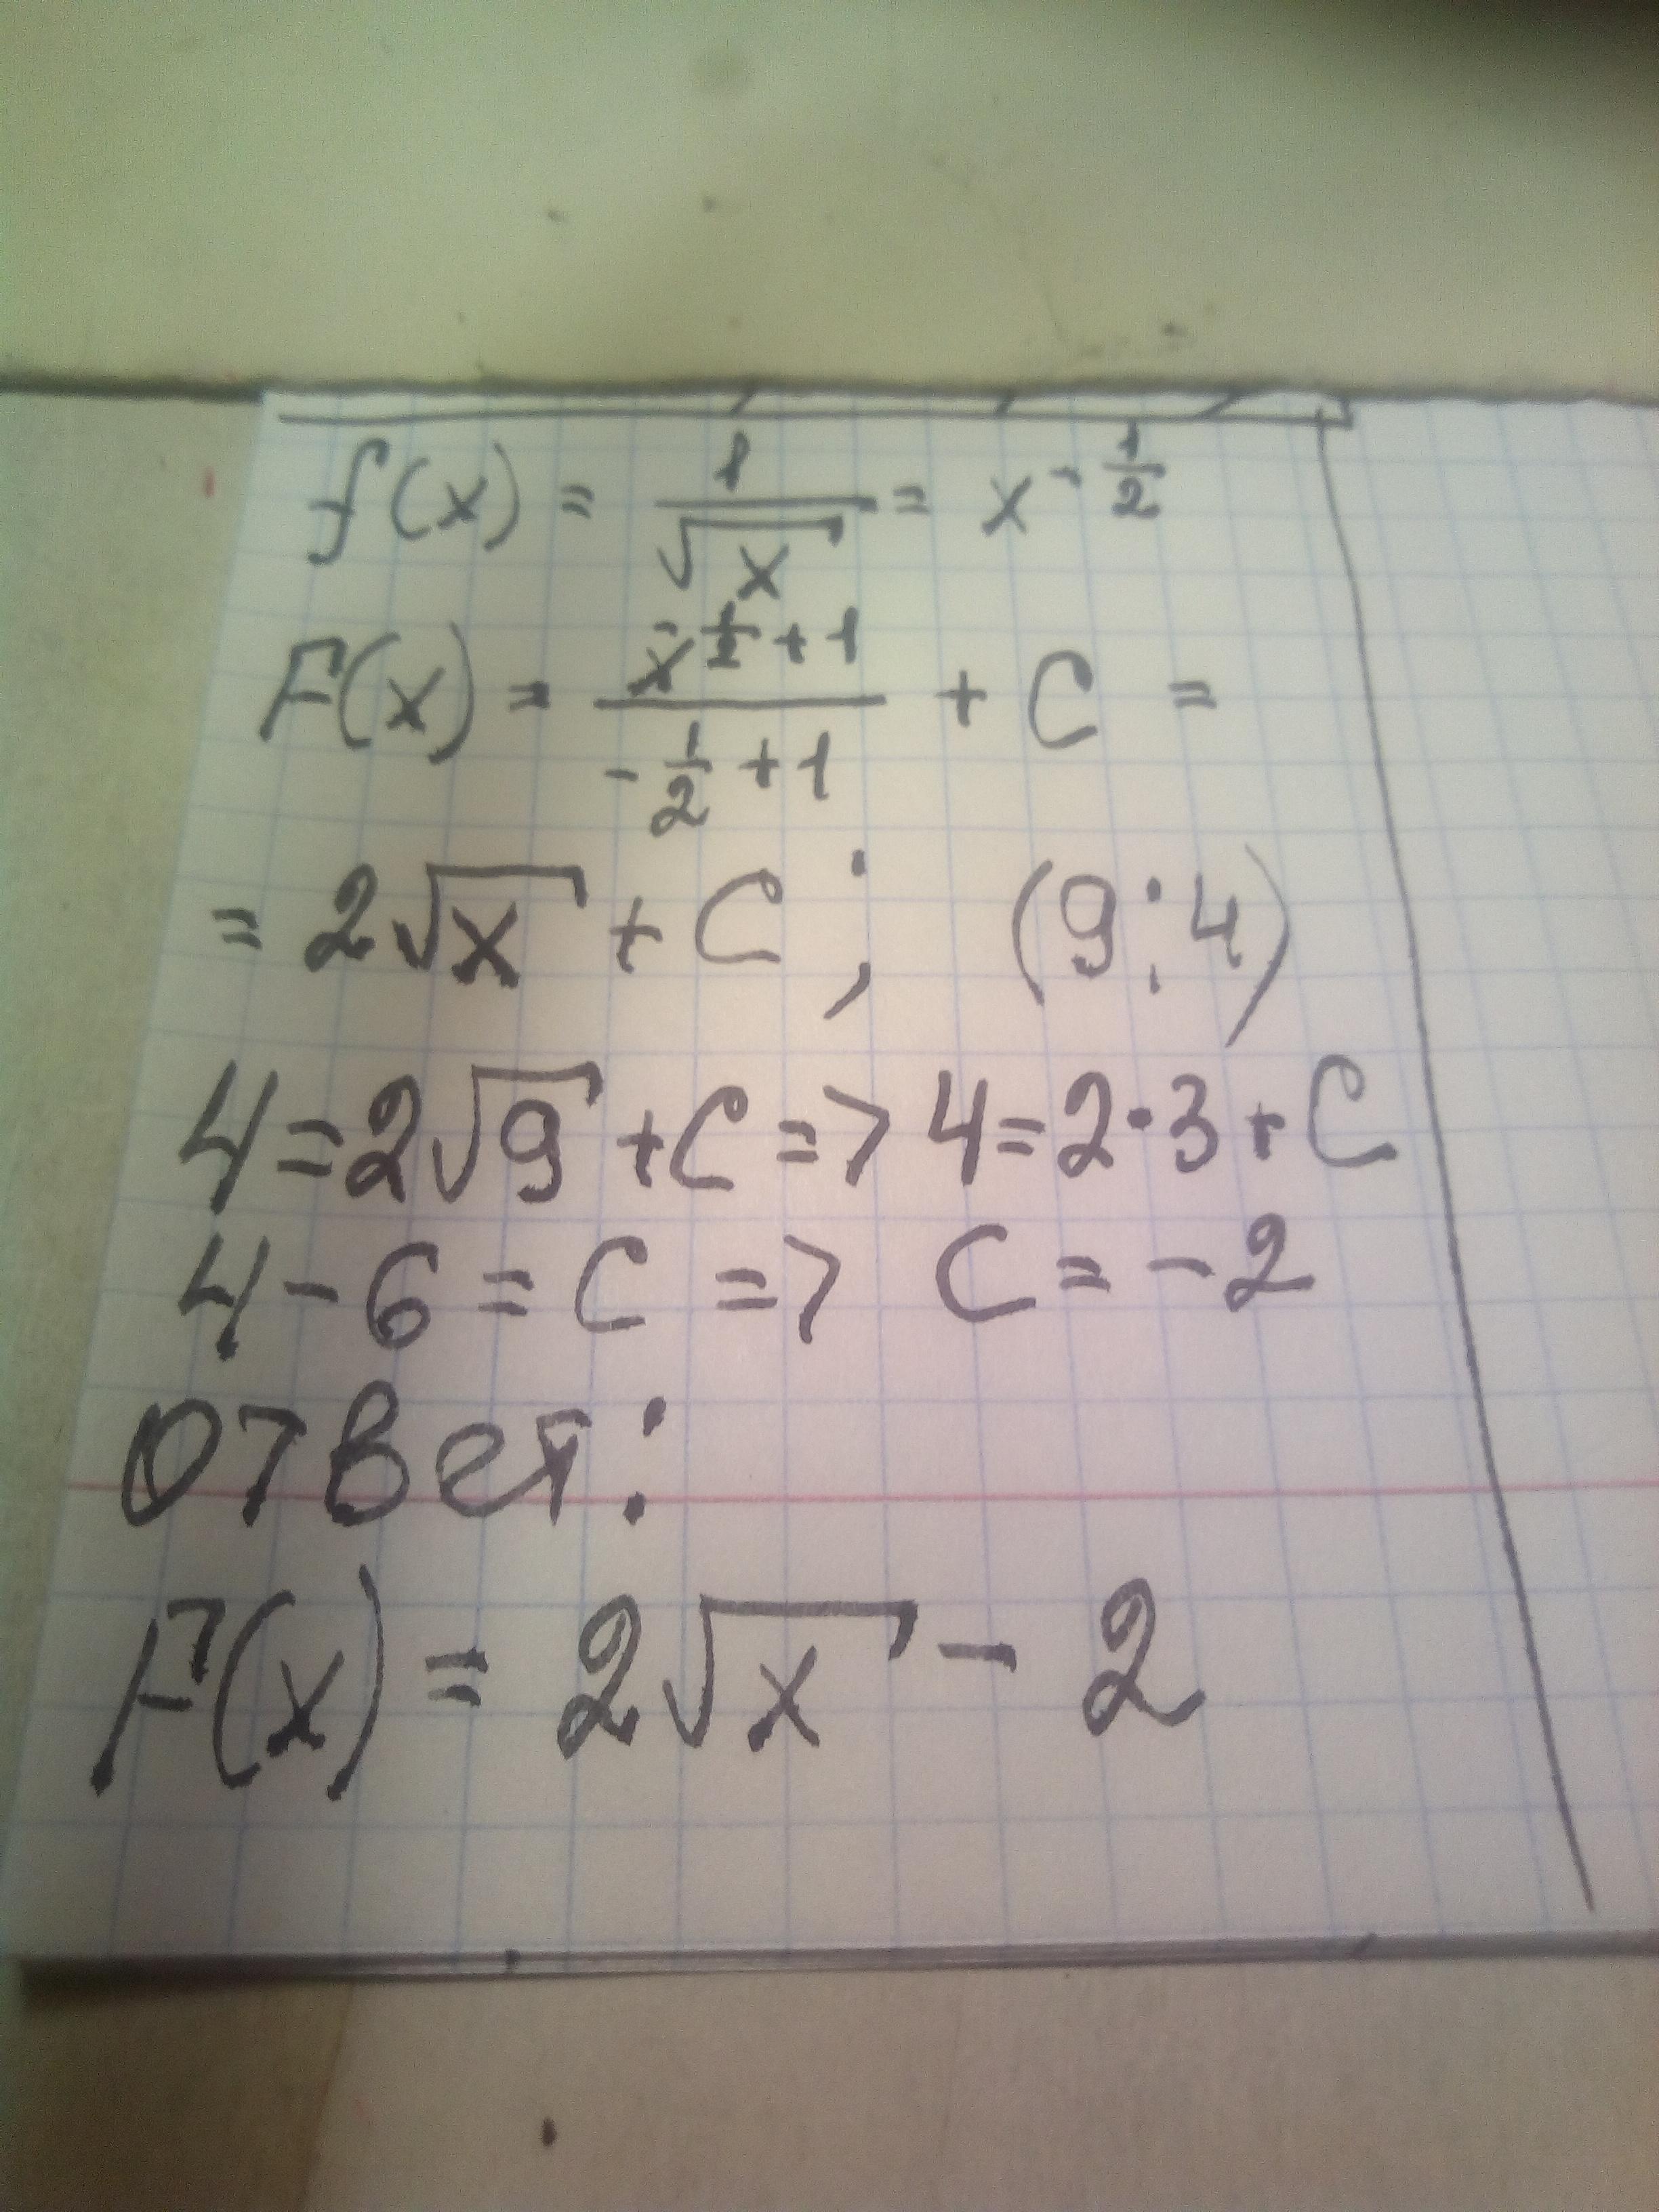 f(x) = 1/√x = x^(-1/2)
F(x) = x^(-1/2 + 1)/(-1/2 + 1) + C =
= 2√x + C ; (9;4)
4=2√9 + C => 4=2·3+C
4-6 = C => C = -2
ответ:
F(x) = 2√x - 2